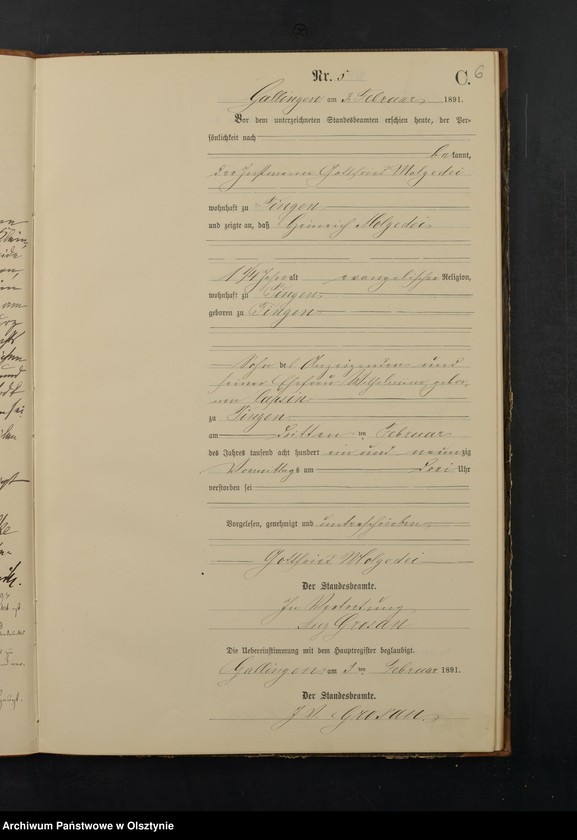 Nr. 5
C. 6
Gallingen am 3. Februar 1891.
Vor dem unterzeichneten Standesbeamten erschien heute, der Per-
sönlichkeit nach
be kannt,
der Instmann Gottfried Molgedei
wohnhaft zu Tingen
und zeigte an, daß Heinrich Molgedei
1 1/4 Jahr alt evangelischer Religion,
wohnhaft zu Tingen
geboren zu Tingen
Sohn des Anzeigenden und
seiner Ehefrau Wilhelmine gebor-
nen
zu Tingen
am Dritten ten Februar
des Jahres tausend acht hundert ein und neun zig
Vormittags um Drei Uhr
verstorben sei
Vorgelesen, genehmigt und unterschrieben
Gottfried Molgedei
Der Standesbeamte.
In Vertretung
Aug Grosan
Die Uebereinstimmung mit dem Hauptregister beglaubigt.
Gallingen am 3 ten Februar 1891.
Der Standesbeamte.
J V. Grosan.
Archiwum Państwowe w Olsztynie